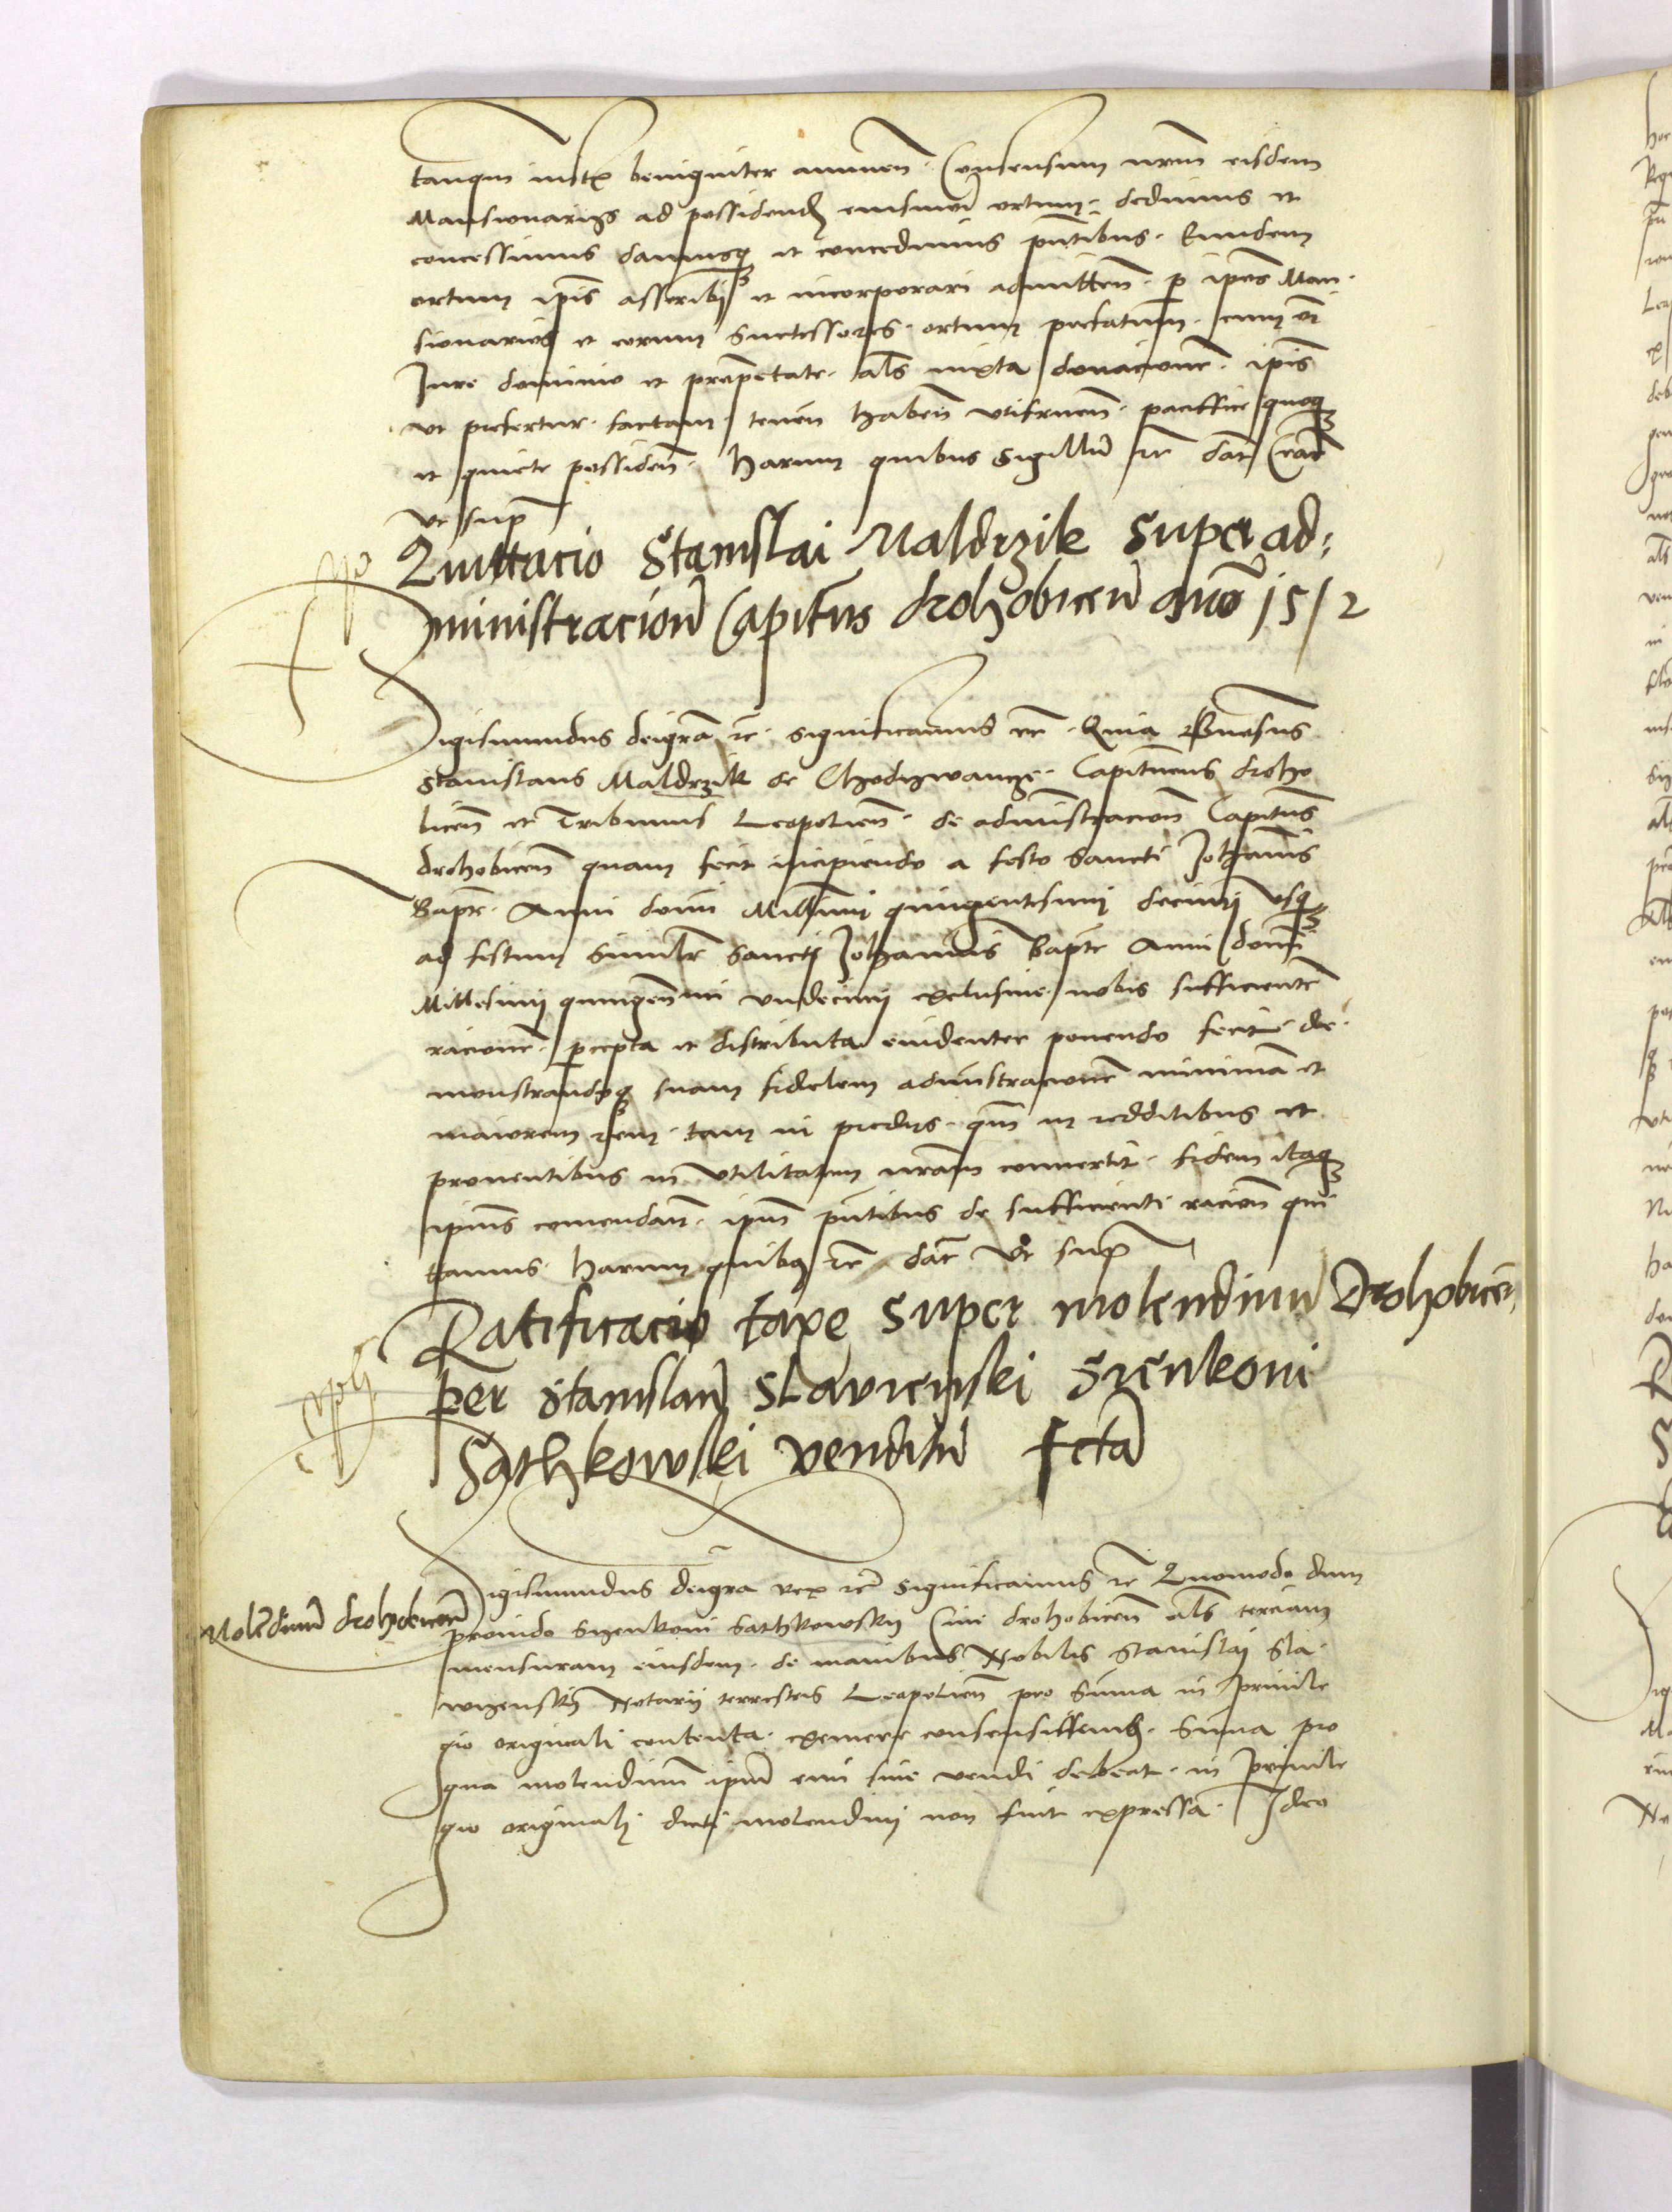 tanqm iustis benigniter annuen. Consensum nrm eisdem
Mansionariis ad possidend eiusmodi ortum dedimus et
concessimus damusq et concedimus pntibus. Eundem
ortum ipis asscribi et incorporari admitten. p ipos Man
sionarios et eorum Successores. ortum prefatum. cum oi
Jure dominio et proprietate. als iuxta donacione. ipis
ut prefertur. factam. tenen haben utifruen. paciffice quoq
et quiete possiden. Harum quibus Sigillu rc dat Crac
ut supr
Quittacio Stanislai Maldrzik super ad
ministracion Capitus drohobicen anno 1512
Sigismundus deigra rc. significamus rc. Quia Gnosus
Stanislaus Maldrzik de Chodywancze. Capitneus droho
bicen et Tribunus Leopolien. de administracion Capitus
drohobicen quam fecit incipiendo a festo Sancti Johannis
Bapte. Anni domi Millimi quingentesimi decimi usq
ad festum similr Sancti Johannis Bapte Anni domi
Millesimi quingenmi undecimi exclusiue. nobis sufficiente
racione. pcepta et distributa euidenter ponendo fecit. de
monstrandoq suam fidelem administracione minima et
maiorem rem. tam in prediis. qm in redditibus et
prouentibus in utilitatem nram conuertit. fidem itaq
ipius comendan. ipm pntibus de sufficienti racion qui
ttamus. Harum quibus rc dat ut supr
Ratificacio taxe super molendinu Drohobicen
per Stanislau Slavienski Sienkoni
Sathkowski venditu fcta
Molendinum drohobicen
Sigismundus deigra rex rc Significamus rc Quomodo dum
prouido Syenkoni Sathkowsky Ciui drohobicen als terciam
mensuram eiusdem. de manibus Nobilis Stanislai Sla
wyensky Notarii terrestris Leopolien pro summa in priuile
gio originali contenta. exemere consensissemus. Summa pro
qua molendinum ipum emi siue vendi debeat. in priuile
gio originali dicti molendini non fuit expressa. Ideo